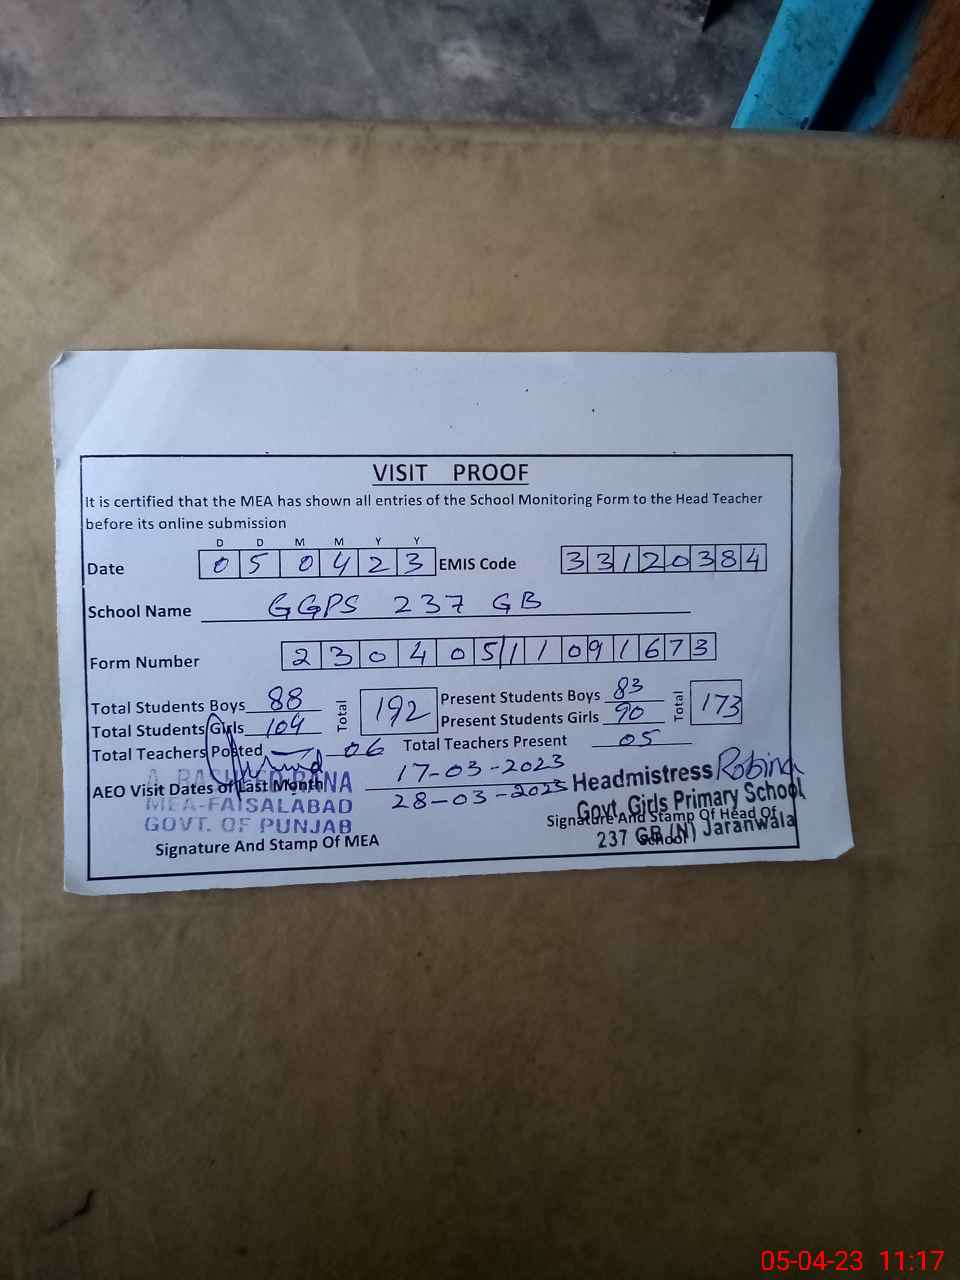 VISIT PROOF
It is certified that the MEA has shown all entries of the School Monitoring Form to the Head Teacher
before its online submission
D D M M Y Y
Date 0 5 0 4 2 3 EMIS Code 3 3 1 2 0 3 8 4
School Name GGPS 237 GB
Form Number 2 3 0 4 0 5 1 1 0 9 1 6 7 3
Total Students Boys 88 Total 192 Present Students Boys 83 Total 173
Total Students Girls 104 Present Students Girls 90
Total Teachers Posted 06 Total Teachers Present 05
AEO Visit Dates of Last Month 17-03-2023
28-03-2023
A. RASHEED RANA
MEA-FAISALABAD
GOVT. OF PUNJAB
Signature And Stamp Of MEA
Headmistress Robina
Govt. Girls Primary School
237 GB (N) Jaranwala
Signature And Stamp Of Head Of
School
05-04-23 11:17